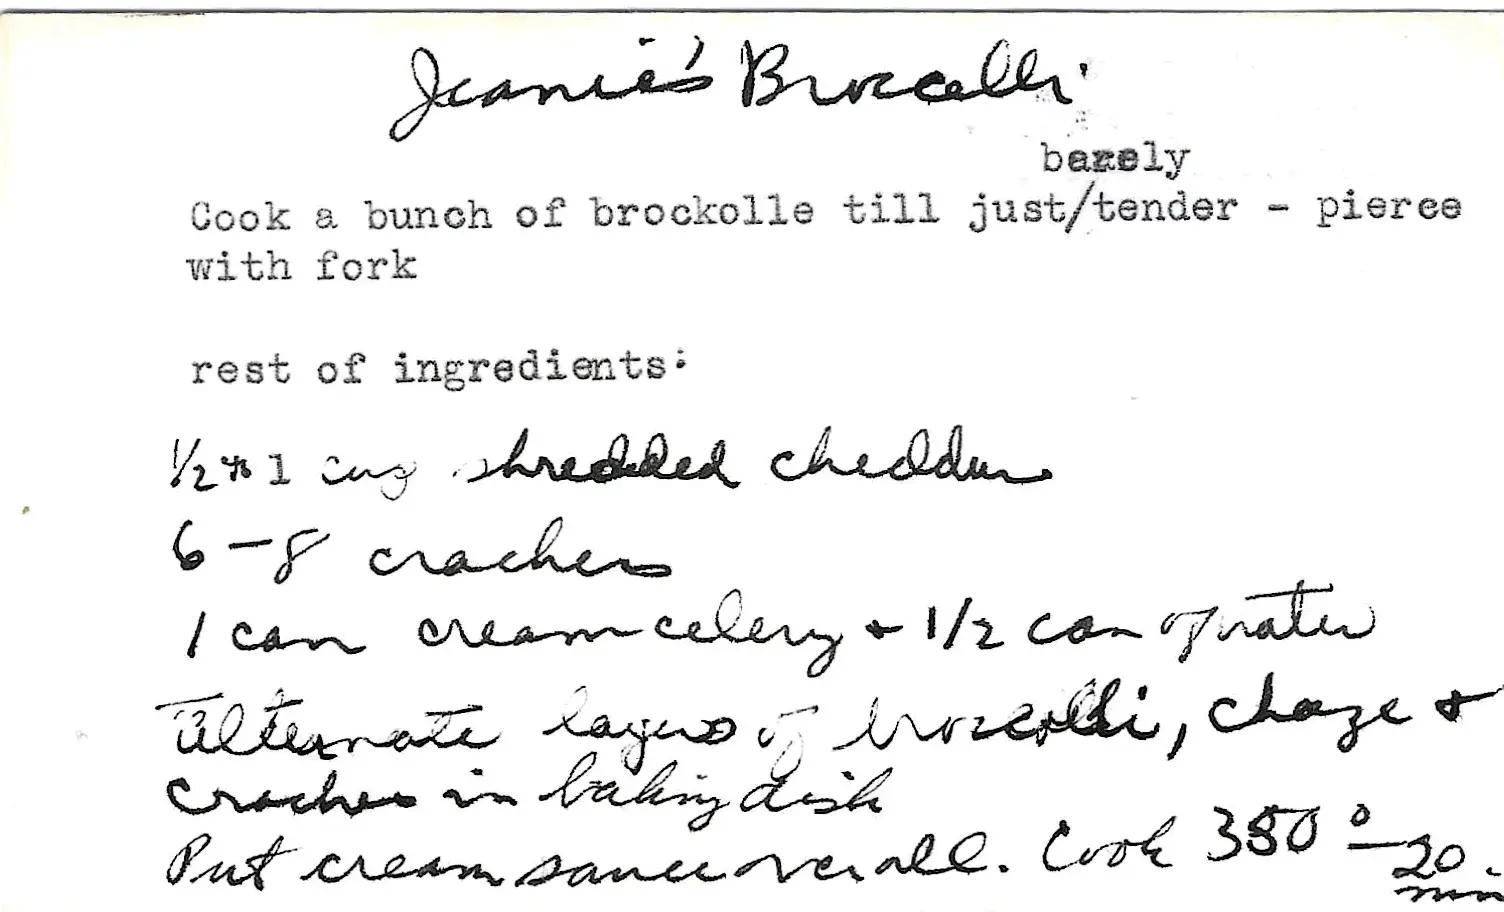 Jeanie's Broccolli
barely
Cook a bunch of brockolle till just/tender - pierce
with fork
rest of ingredients:
1/2 to 1 cup shredded cheddar
6-8 crackers
1 can cream celery + 1/2 can of water
Alternate layers of broccolli, cheeze +
crackers in baking dish
Put cream sauce over all. Cook 350° - 20
min